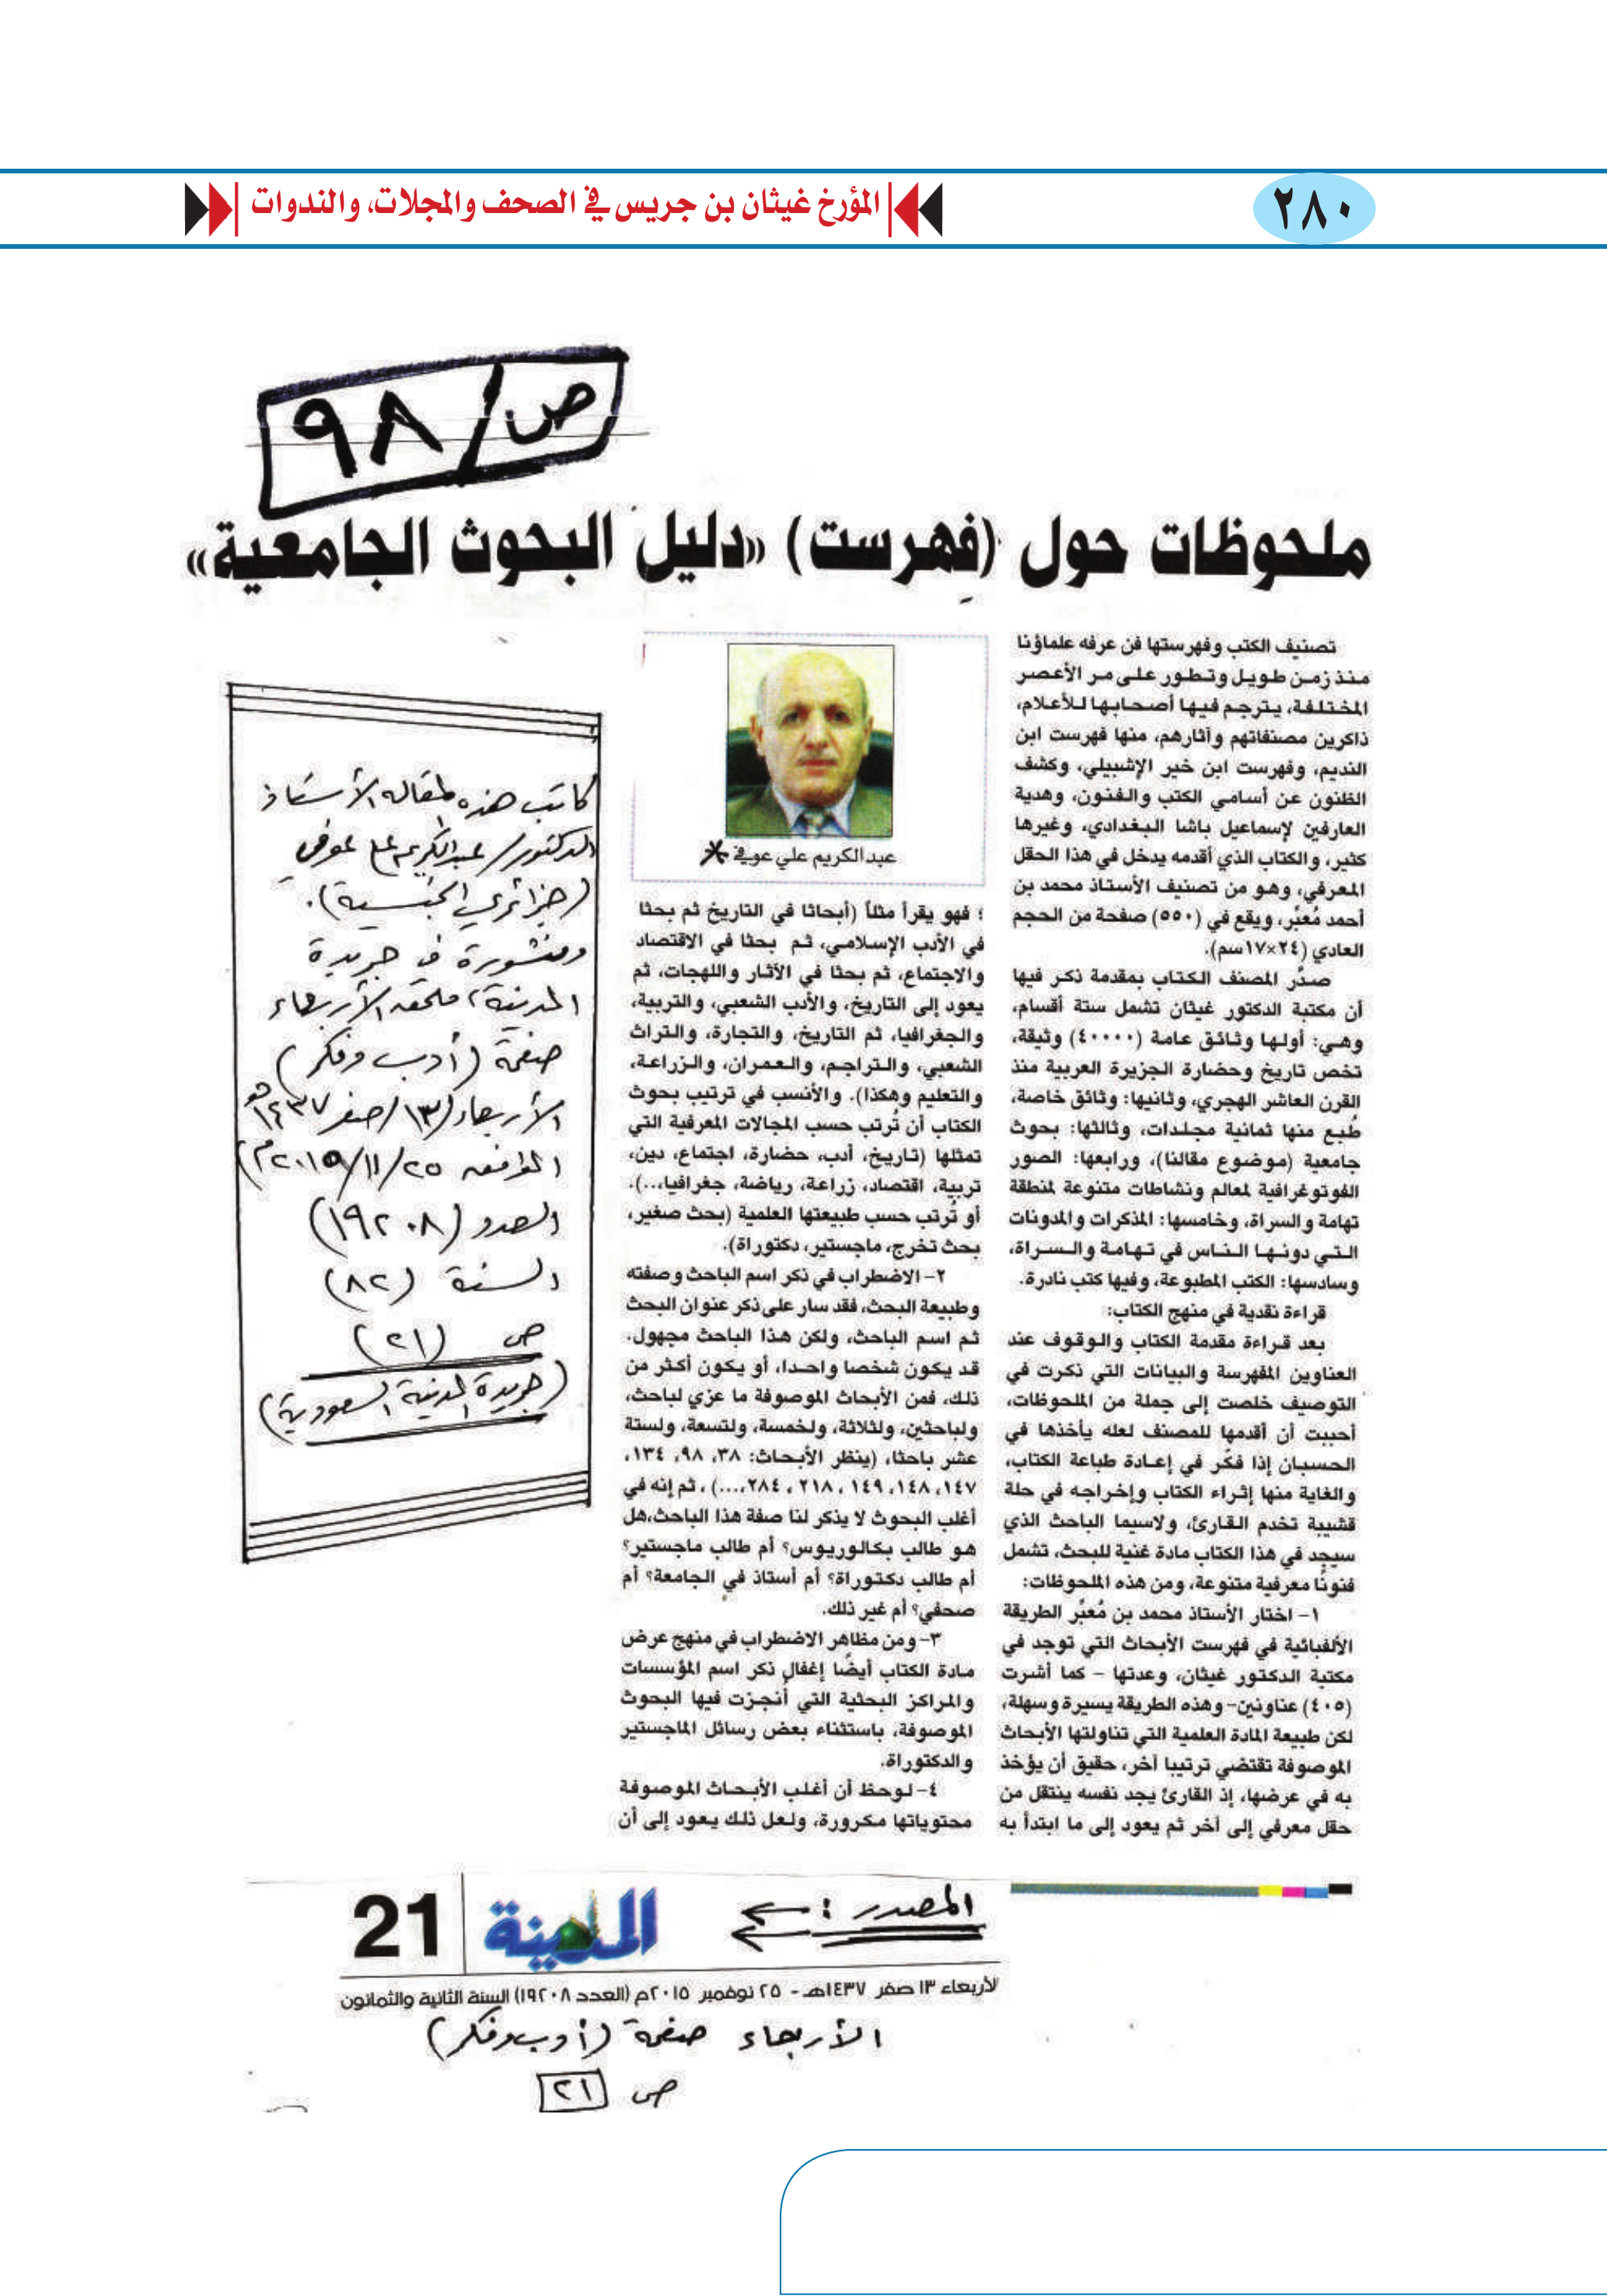 ٢٨٠
المؤرخ غيثان بن جريس في الصحف والمجلات، والندوات
ص/٩٨
ملحوظات حول (فِهرست) «دليل البحوث الجامعية»
تصنيف الكتب وفهرستها فن عرفه علماؤنا
منذ زمن طويل وتطور على مر الأعصر
المختلفة، يترجم فيها أصحابها للأعلام،
ذاكرين مصنفاتهم وآثارهم، منها فهرست ابن
النديم، وفهرست ابن خير الإشبيلي، وكشف
الظنون عن أسامي الكتب والفنون، وهدية
العارفين لإسماعيل باشا البغدادي، وغيرها
كثير، والكتاب الذي أقدمه يدخل في هذا الحقل
المعرفي، وهو من تصنيف الأستاذ محمد بن
أحمد مُعبّر، ويقع في (٥٥٠) صفحة من الحجم
العادي (٢٤×١٧سم).
صدَّر المصنف الكتاب بمقدمة ذكر فيها
أن مكتبة الدكتور غيثان تشمل ستة أقسام،
وهي: أولها وثائق عامة (٤٠٠٠٠) وثيقة،
تخص تاريخ وحضارة الجزيرة العربية منذ
القرن العاشر الهجري، وثانيها: وثائق خاصة،
طُبع منها ثمانية مجلدات، وثالثها: بحوث
جامعية (موضوع مقالنا)، ورابعها: الصور
الفوتوغرافية لمعالم ونشاطات متنوعة لمنطقة
تهامة والسراة، وخامسها: المذكرات والمدونات
التي دونها الناس في تهامة والسراة،
وسادسها: الكتب المطبوعة، وفيها كتب نادرة.
قراءة نقدية في منهج الكتاب:
بعد قراءة مقدمة الكتاب والوقوف عند
العناوين المفهرسة والبيانات التي ذكرت في
التوصيف خلصت إلى جملة من الملحوظات،
أحببت أن أقدمها للمصنف لعله يأخذها في
الحسبان إذا فكّر في إعادة طباعة الكتاب،
والغاية منها إثراء الكتاب وإخراجه في حلة
قشيبة تخدم القارئ، ولاسيما الباحث الذي
سيجد في هذا الكتاب مادة غنية للبحث، تشمل
فنونًا معرفية متنوعة، ومن هذه الملحوظات:
١- اختار الأستاذ محمد بن مُعبِّر الطريقة
الألفبائية في فهرست الأبحاث التي توجد في
مكتبة الدكتور غيثان، وعدتها - كما أشرت
(٤٠٥) عناونين- وهذه الطريقة يسيرة وسهلة،
لكن طبيعة المادة العلمية التي تناولتها الأبحاث
الموصوفة تقتضي ترتيبا آخر، حقيق أن يؤخذ
به في عرضها، إذ القارئ يجد نفسه ينتقل من
حقل معرفي إلى آخر ثم يعود إلى ما ابتدأ به
عبدالكريم علي عوفي
؛ فهو يقرأ مثلاً (أبحاثا في التاريخ ثم بحثا
في الأدب الإسلامي، ثم بحثا في الاقتصاد
والاجتماع، ثم بحثا في الآثار واللهجات، ثم
يعود إلى التاريخ، والأدب الشعبي، والتربية،
والجغرافيا، ثم التاريخ، والتجارة، والتراث
الشعبي، والتراجم، والعمران، والزراعة،
والتعليم وهكذا). والأنسب في ترتيب بحوث
الكتاب أن تُرتب حسب المجالات المعرفية التي
تمثلها (تاريخ، أدب، حضارة، اجتماع، دين،
تربية، اقتصاد، زراعة، رياضة، جغرافيا،...).
أو تُرتب حسب طبيعتها العلمية (بحث صغير،
بحث تخرج، ماجستير، دكتوراة).
٢- الاضطراب في ذكر اسم الباحث وصفته
وطبيعة البحث، فقد سار على ذكر عنوان البحث
ثم اسم الباحث، ولكن هذا الباحث مجهول.
قد يكون شخصا واحدا، أو يكون أكثر من
ذلك، فمن الأبحاث الموصوفة ما عزي لباحث،
ولباحثين، ولثلاثة، ولخمسة، ولتسعة، ولستة
عشر باحثا، (ينظر الأبحاث: ٣٨، ٩٨، ١٣٤،
١٤٧، ١٤٨، ١٤٩، ٢١٨، ٢٨٤،...)، ثم إنه في
أغلب البحوث لا يذكر لنا صفة هذا الباحث،هل
هو طالب بكالوريوس؟ أم طالب ماجستير؟
أم طالب دكتوراة؟ أم أستاذ في الجامعة؟ أم
صحفي؟ أم غير ذلك.
٣- ومن مظاهر الاضطراب في منهج عرض
مادة الكتاب أيضًا إغفال ذكر اسم المؤسسات
والمراكز البحثية التي أُنجزت فيها البحوث
الموصوفة، باستثناء بعض رسائل الماجستير
والدكتوراة.
٤- لوحظ أن أغلب الأبحاث الموصوفة
محتوياتها مكرورة، ولعل ذلك يعود إلى أن
كاتب هذه المقاله الأستاذ
الدكتور/ عبدالكريم علي عوفي
(جزائري الجنسية).
ومنشورة في جريدة
المدينة، ملحق الأربعاء
صفحة (أدب وفكر)
الأربعاء/١٣/صفر/١٤٣٧هـ
الموافق ٢٥/١١/٢٠١٥م)
العدد (١٩٢٠٨)
السنة (٨٢)
ص (٢١)
(جريدة المدينة السعودية)
المصدر:
المدينة
21
لأربعاء ١٣ صفر ١٤٣٧هـ - ٢٥ نوفمبر ٢٠١٥م (العدد ١٩٢٠٨) السنة الثانية والثمانون
الأربعاء صفحة (أدب وفكر)
ص ٢١